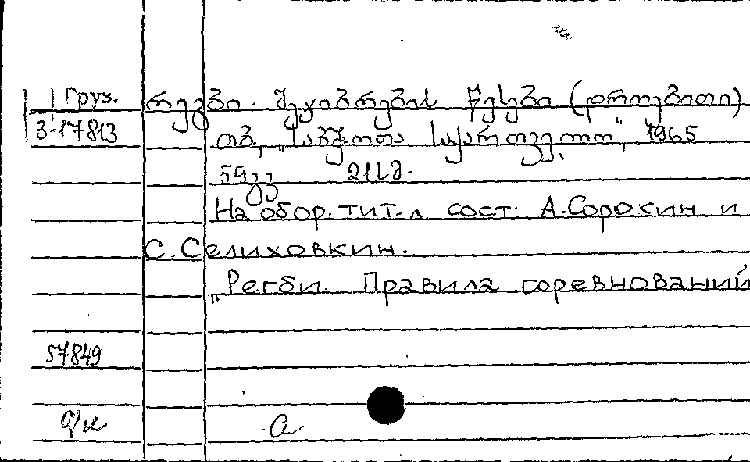 Груз. რეგბი. შეჯიბრების წესები (დროებითი)
3-17813 თბ., "საბჭოთა საქართველო", 1965
59 გვ 21სმ.
На обор. тит. л сост. А. Сорокин и
С. Селиховкин.
"Регби. Правила соревнований
57849
а